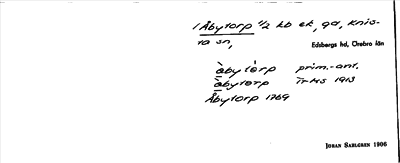 1 Åbytorp 1/2 kb ek, ga, Knis-
ta sn,
Edsbergs hd, Örebro län
åbytòrp prim.-ant.
åbytorp IrMs 1913
Åbytorp 1769
JOHAN SAHLGREN 1906